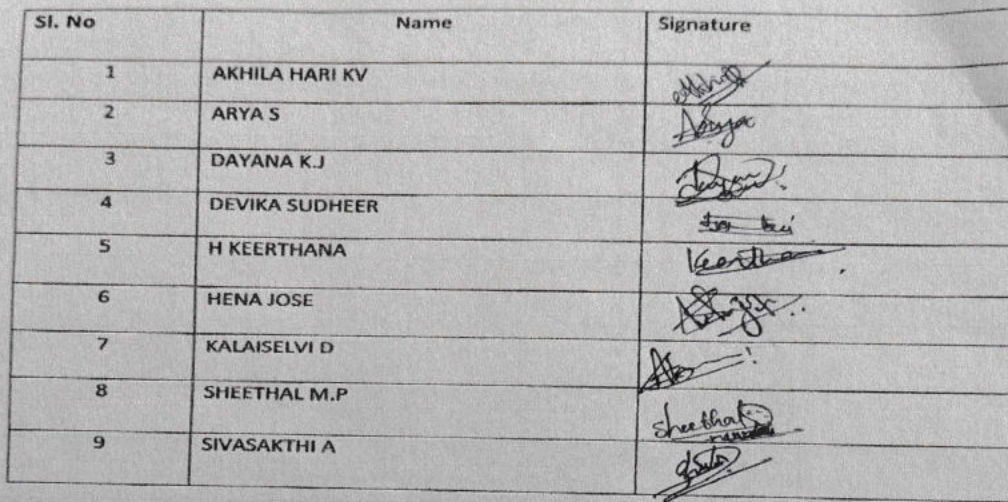 Sl. No Name Signature
1 AKHILA HARI KV
2 ARYA S Arya
3 DAYANA K.J
4 DEVIKA SUDHEER
5 H KEERTHANA Keerthana
6 HENA JOSE
7 KALAISELVI D
8 SHEETHAL M.P Sheethal
9 SIVASAKTHI A